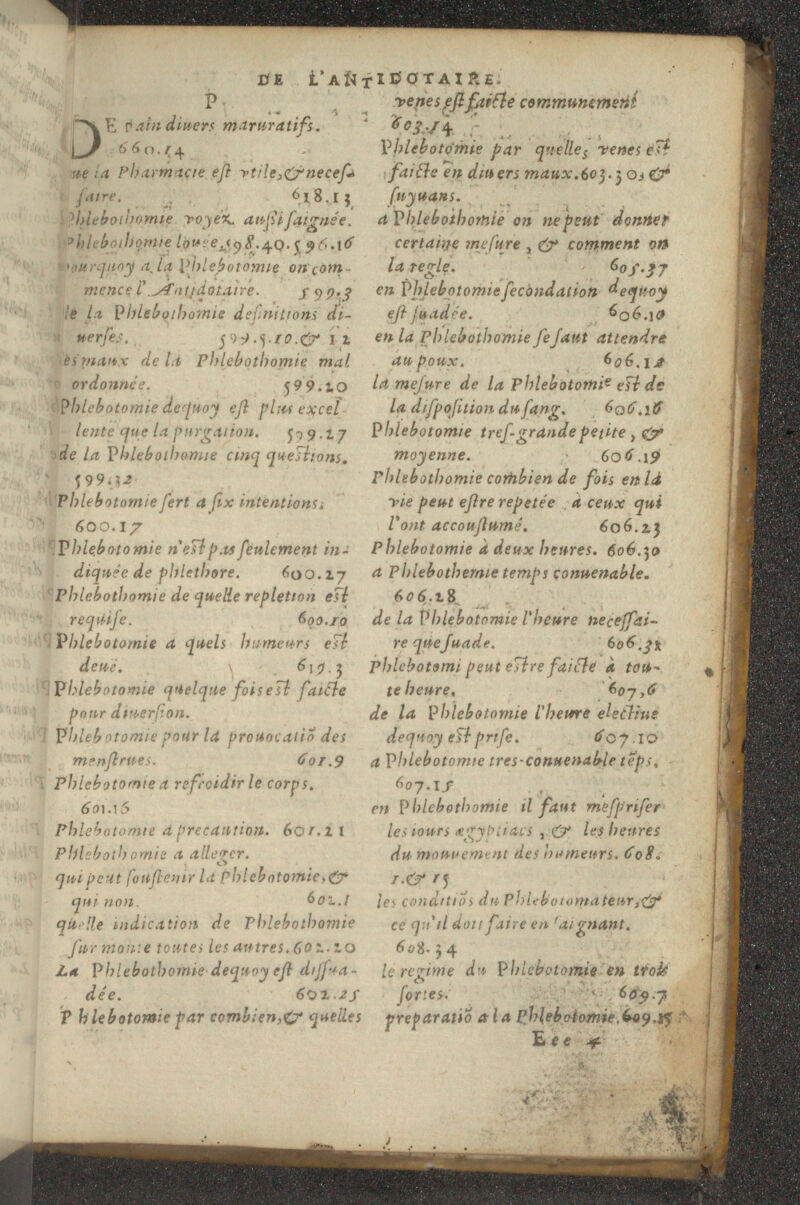 DE L'ANTIDOTAIRE.
P
DE pain diuers maturatifs.
660.14
de la Pharmacie est vtile,& necess
faire. 618.13
Phlebothomie voyéz. aussi saignée.
Phlebothomie louée.598.40.596.16
pourquoy a la Phlebotomie on com-
mence l'Antidotaire. 599.3
de la Phlebothomie definitions di-
uerses. 599.5.10.& 12
es maux de la Phlebothomie mal
ordonnée. 599.20
Phlebotomie dequoy est plus excel-
lente que la purgation. 599.27
de la Phlebothomie cinq questions.
599.32
Phlebotomie sert a six intentions.
600.17
Phlebotomie n'est pas seulement in-
diquée de phlethore. 600.27
Phlebothomie de quelle repletion est
requise. 600.30
Phlebotomie a quels humeurs est
deuë. 619.3
Phlebotomie quelque fois est faicte
pour diuersion.
Phlebotomie pour la prouocatiō des
menstrues. 601.9
Phlebotomie a refroidir le corps.
601.16
Phlebotomie a precaution. 601.21
Phlebothomie a alleger.
qui peut soustenir la Phlebotomie,&
qui non. 602.1
quelle indication de Phlebothomie
surmonte toutes les autres. 602.20
La Phlebothomie dequoy est dissua-
dée. 602.25
Phlebotomie par combien,& quelles
venes est faicte communement
603.14
Phlebotomie par quelles venes est
faicte en diuers maux.603.30 &
suyuans.
a Phlebothomie on ne peut donner
certaine mesure, & comment on
la regle. 605.37
en Phlebotomie secondation dequoy
est suadée. 606.10
en la Phlebothomie se faut attendre
au poux. 606.12
la mesure de la Phlebotomie est de
la disposition du sang. 606.16
Phlebotomie tres-grande petite, &
moyenne. 606.19
Phlebothomie combien de fois en la
vie peut estre repetée a ceux qui
l'ont accoustumé. 606.23
Phlebotomie a deux heures. 606.30
a Phlebothemie temps conuenable.
606.28
de la Phlebotomie l'heure necessai-
re que suade. 606.31
Phlebotomi peut estre faicte a tou-
te heure. 607,6
de la Phlebotomie l'heure electiue
dequoy est prise. 607.10
a Phlebotomie tres-conuenable tēps.
607.15
en Phlebothomie il faut mesprifer
les iours ægyptiacs, & les heures
du mouuement des humeurs. 608.
1.& 15
les conditiōs du Phlebotomateur,&
ce qu'il doit faire en saignant.
608.34
le regime du Phlebotomie en trois
sortes. 609.7
preparatiō a la Phlebotomie.609.15
Eee 4